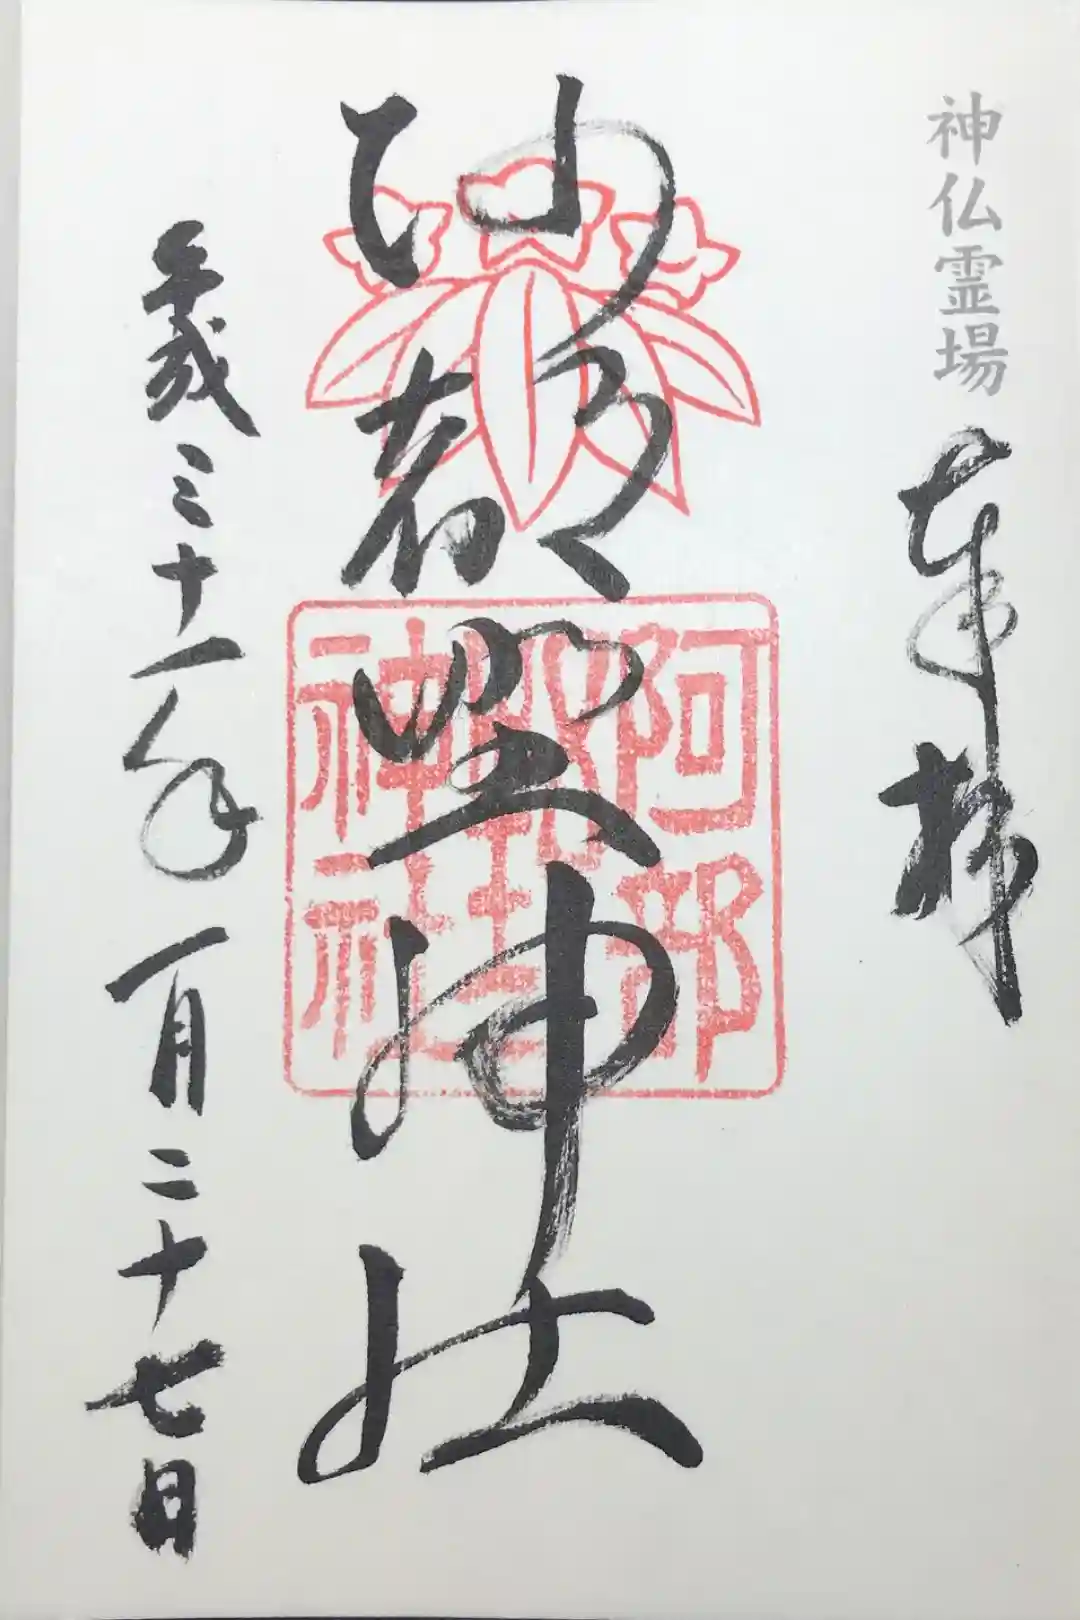 神仏霊場
奉拝
阿部野神社
阿部野神社
平成三十一年一月二十七日